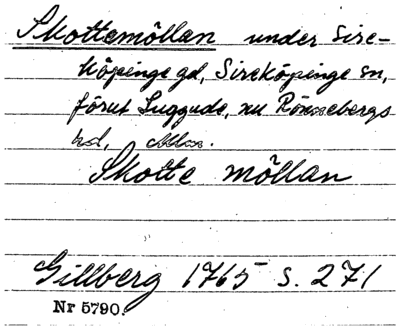 Skottemöllan under Sire-
köpinge gd, Sireköpinge sn,
förut Luggude, nu Rönnebergs
hd,
Skotte möllan
Gillberg 1765 s. 271
Nr 5790.